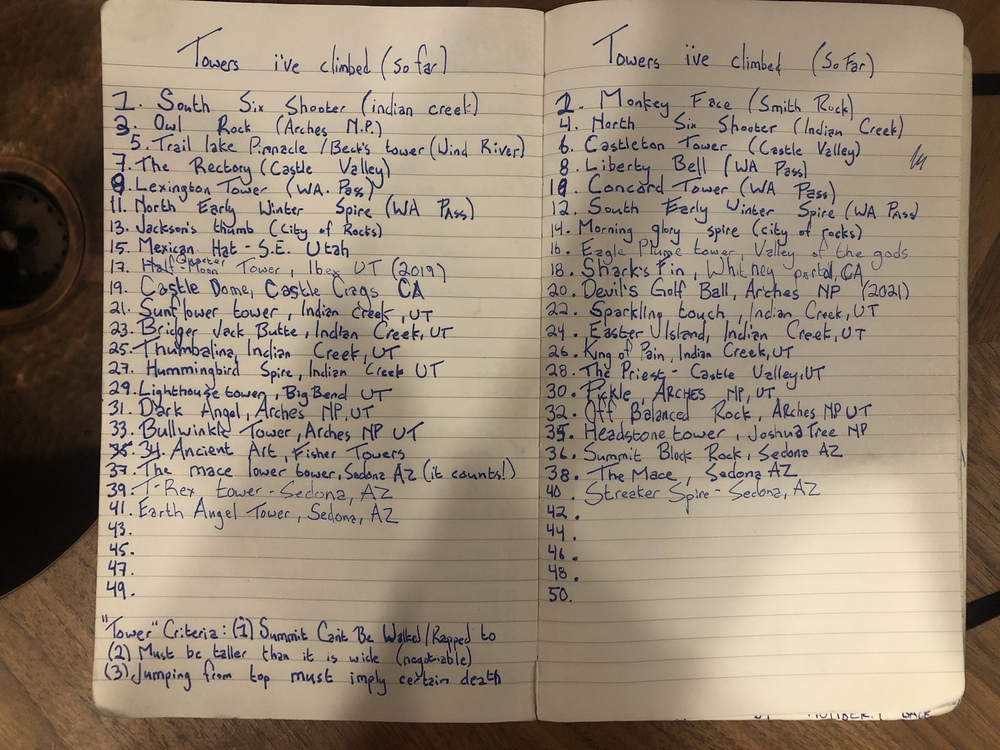 Towers i've climbed (So far)
1. South Six Shooter (indian creek)
3. Owl Rock (Arches N.P.)
5. Trail lake Pinnacle / Beck's tower (Wind River)
7. The Rectory (Castle Valley)
9. Lexington Tower (WA. Pass)
11. North Early Winter Spire (WA Pass)
13. Jackson's thumb (City of Rocks)
15. Mexican Hat - S.E. Utah
17. Half-Moon Quarter Tower, Ibex UT (2019)
19. Castle Dome, Castle Crags CA
21. Sunflower tower, Indian Creek, UT
23. Bridger Jack Butte, Indian Creek, UT
25. Thumbalina, Indian Creek, UT
27. Hummingbird Spire, Indian Creek UT
29. Lighthouse tower, Big Bend UT
31. Dark Angel, Arches NP, UT
33. Bullwinkle Tower, Arches NP UT
34. Ancient Art, Fisher Towers
37. The mace lower tower, Sedona AZ (it counts!)
39. T-Rex tower - Sedona, AZ
41. Earth Angel Tower, Sedona, AZ
43.
45.
47.
49.
"Tower" Criteria: (1) Summit Can't Be Walked/Rapped to
(2) Must be taller than it is wide (negotiable)
(3) Jumping from top must imply certain death
Towers i've climbed (So Far)
2. Monkey Face (Smith Rock)
4. North Six Shooter (Indian Creek)
6. Castleton Tower (Castle Valley)
8. Liberty Bell (WA Pass)
10. Concord Tower (WA Pass)
12. South Early Winter Spire (WA Pass)
14. Morning glory spire (city of rocks)
16. Eagle Plume tower, Valley of the gods
18. Shark's Fin, Whitney portal, CA
20. Devil's Golf Ball, Arches NP (2021)
22. Sparkling touch, Indian Creek, UT
24. Easter Island, Indian Creek, UT
26. King of Pain, Indian Creek, UT
28. The Priest - Castle Valley, UT
30. Pickle, ARCHES NP, UT
32. Off Balanced Rock, Arches NP UT
35. Headstone tower, Joshua Tree NP
36. Summit Block Rock, Sedona AZ
38. The Mace, Sedona AZ
40. Streaker Spire - Sedona, AZ
42.
44.
46.
48.
50.